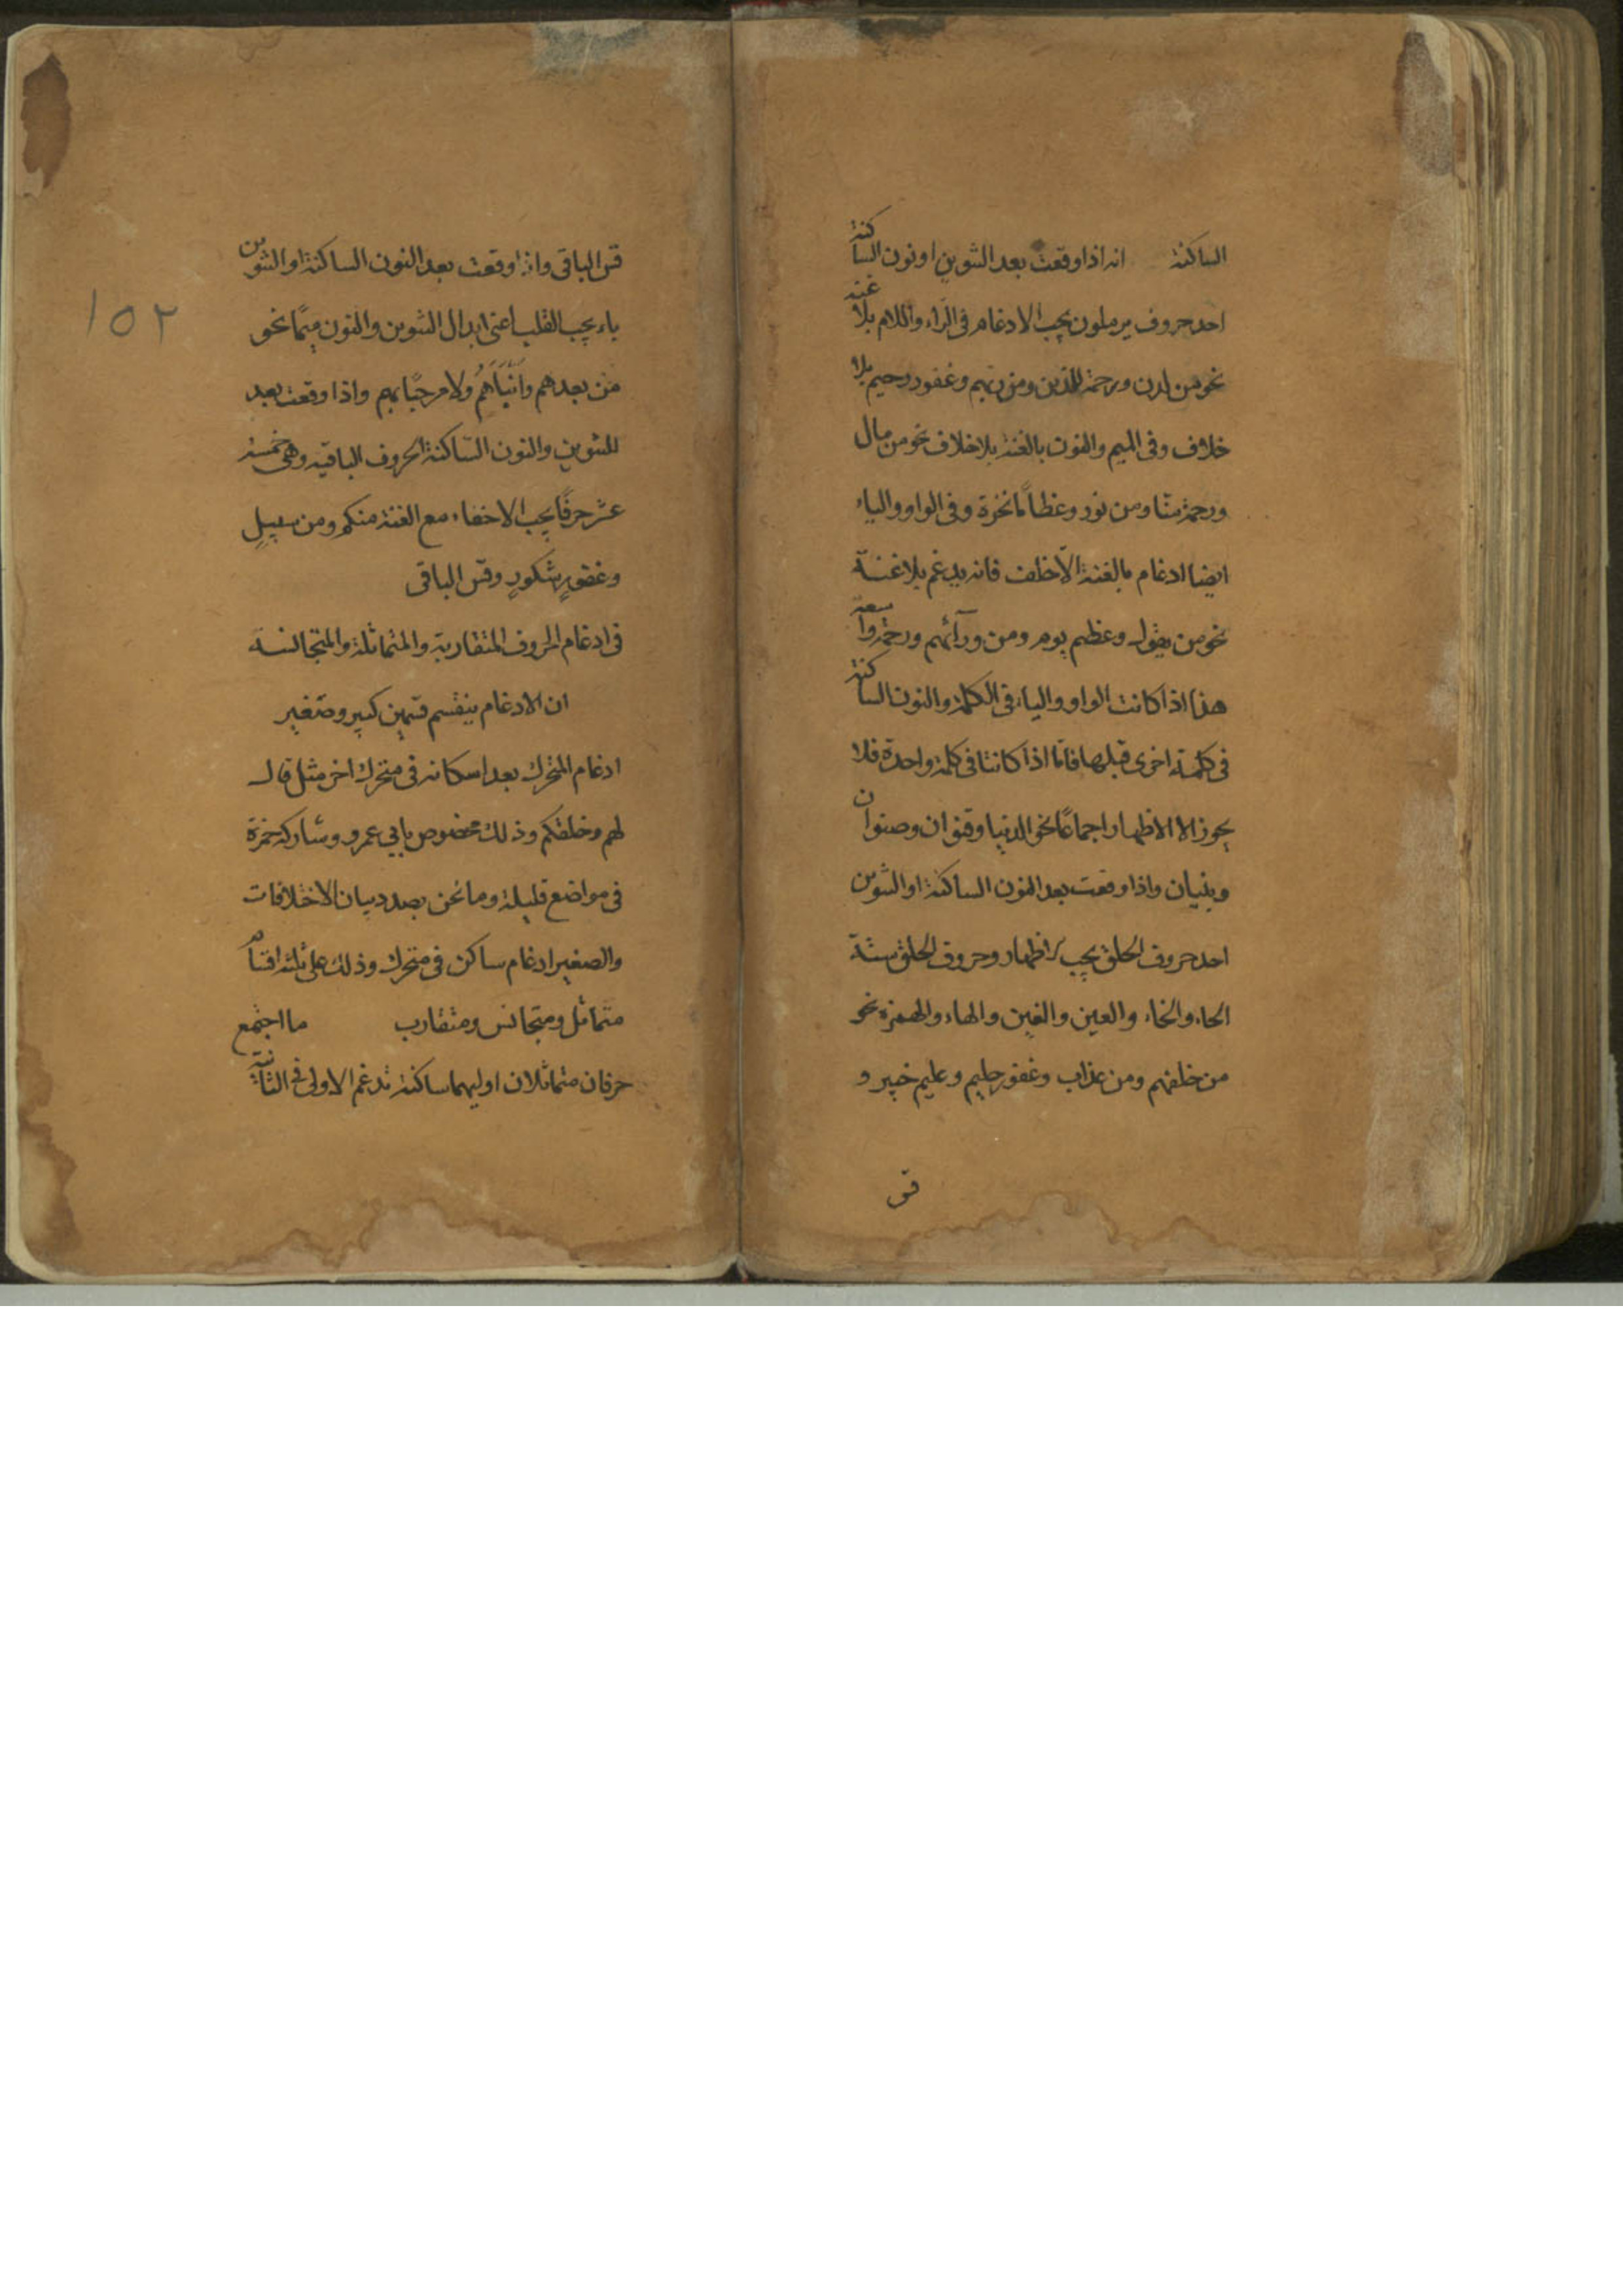 الساكنة انه اذا وقعت بعد التنوين او نون الساكنة
احد حروف يرملون يجب الادغام فى الرّاء واللام بلا غنه
نحو من لدن ورحمة للذين ومن ربهم وغفور رحيم بلا
خلاف وفى الميم والنون بالغنة بلا خلاف نحو من مال
ورحمة منّا ومن نور وعظاماً نخرة وفى الواو والياء
ايضا ادغام بالغنة الّا خلف فانه يدغم بلا غنة
نحو من يقول وعظيم يوم ومن ورآئهم ورحمة واسعة
هذا اذا كانت الواو والياء فى الكلمة والنون الساكنة
فى كلمة اخرى قبلها فامّا اذا كانتا فى كلمة واحدة فلا
يجوز الا الاظهار اجماعًا نحو الدنيا وقنوان وصنوان
وبنيان واذا وقعت بعد النون الساكنة او التنوين
احد حروف الحلق يجب اظهار وحروف الحلق ستة
الحاء والخاء والعين والغين والهاء والهمزة نحو
من خلفهم ومن عذاب وغفور حليم وعليم خبير و
قس
قس الباقى واذا وقعت بعد النون الساكنة او التنوين
باء يجب القلب اعنى ابدال التنوين والنون ميمًا نحو
من بعدهم وانبأهم ولا مرحبًا بهم واذا وقعت بعد
التنوين والنون السّاكنة الحروف الباقيه وهى خمسة
عشر حرفًا يجب الاخفاء مع الغنة منكم ومن سبيلٍ
وغفورٍ شكورٍ وقس الباقى
فى ادغام الحروف المتقاربة والمتماثلة والمتجانسة
ان الادغام ينقسم قسمين كبير وصغير
ادغام المتحرك بعد اسكانه فى متحرك اخر مثل قال
لهم وخلقكم وذلك مخصوص بابى عمرو وشاركه حمزة
فى مواضع قليلة وما نحن بصدد بيان الاختلافات
والصغير ادغام ساكن فى متحرك وذلك على ثلثة اقسام
متماثل ومتجانس ومتقارب ما اجتمع
حرفان متماثلان اوليهما ساكنة تدغم الاولى فى الثانية
١٥٢